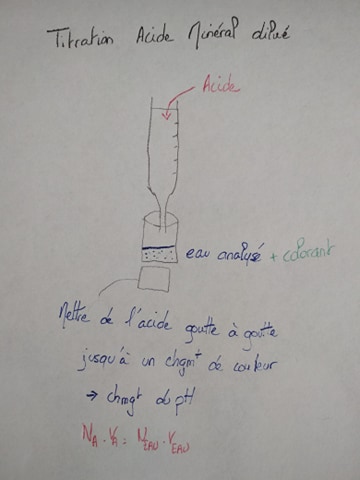 Titration Acide Minéral dilué
Acide
eau analysé + colorant
Mettre de l'acide goutte à goutte
jusqu'à un chgmt de couleur
→ chmgt du pH
NA . VA = NEAU . VEAU